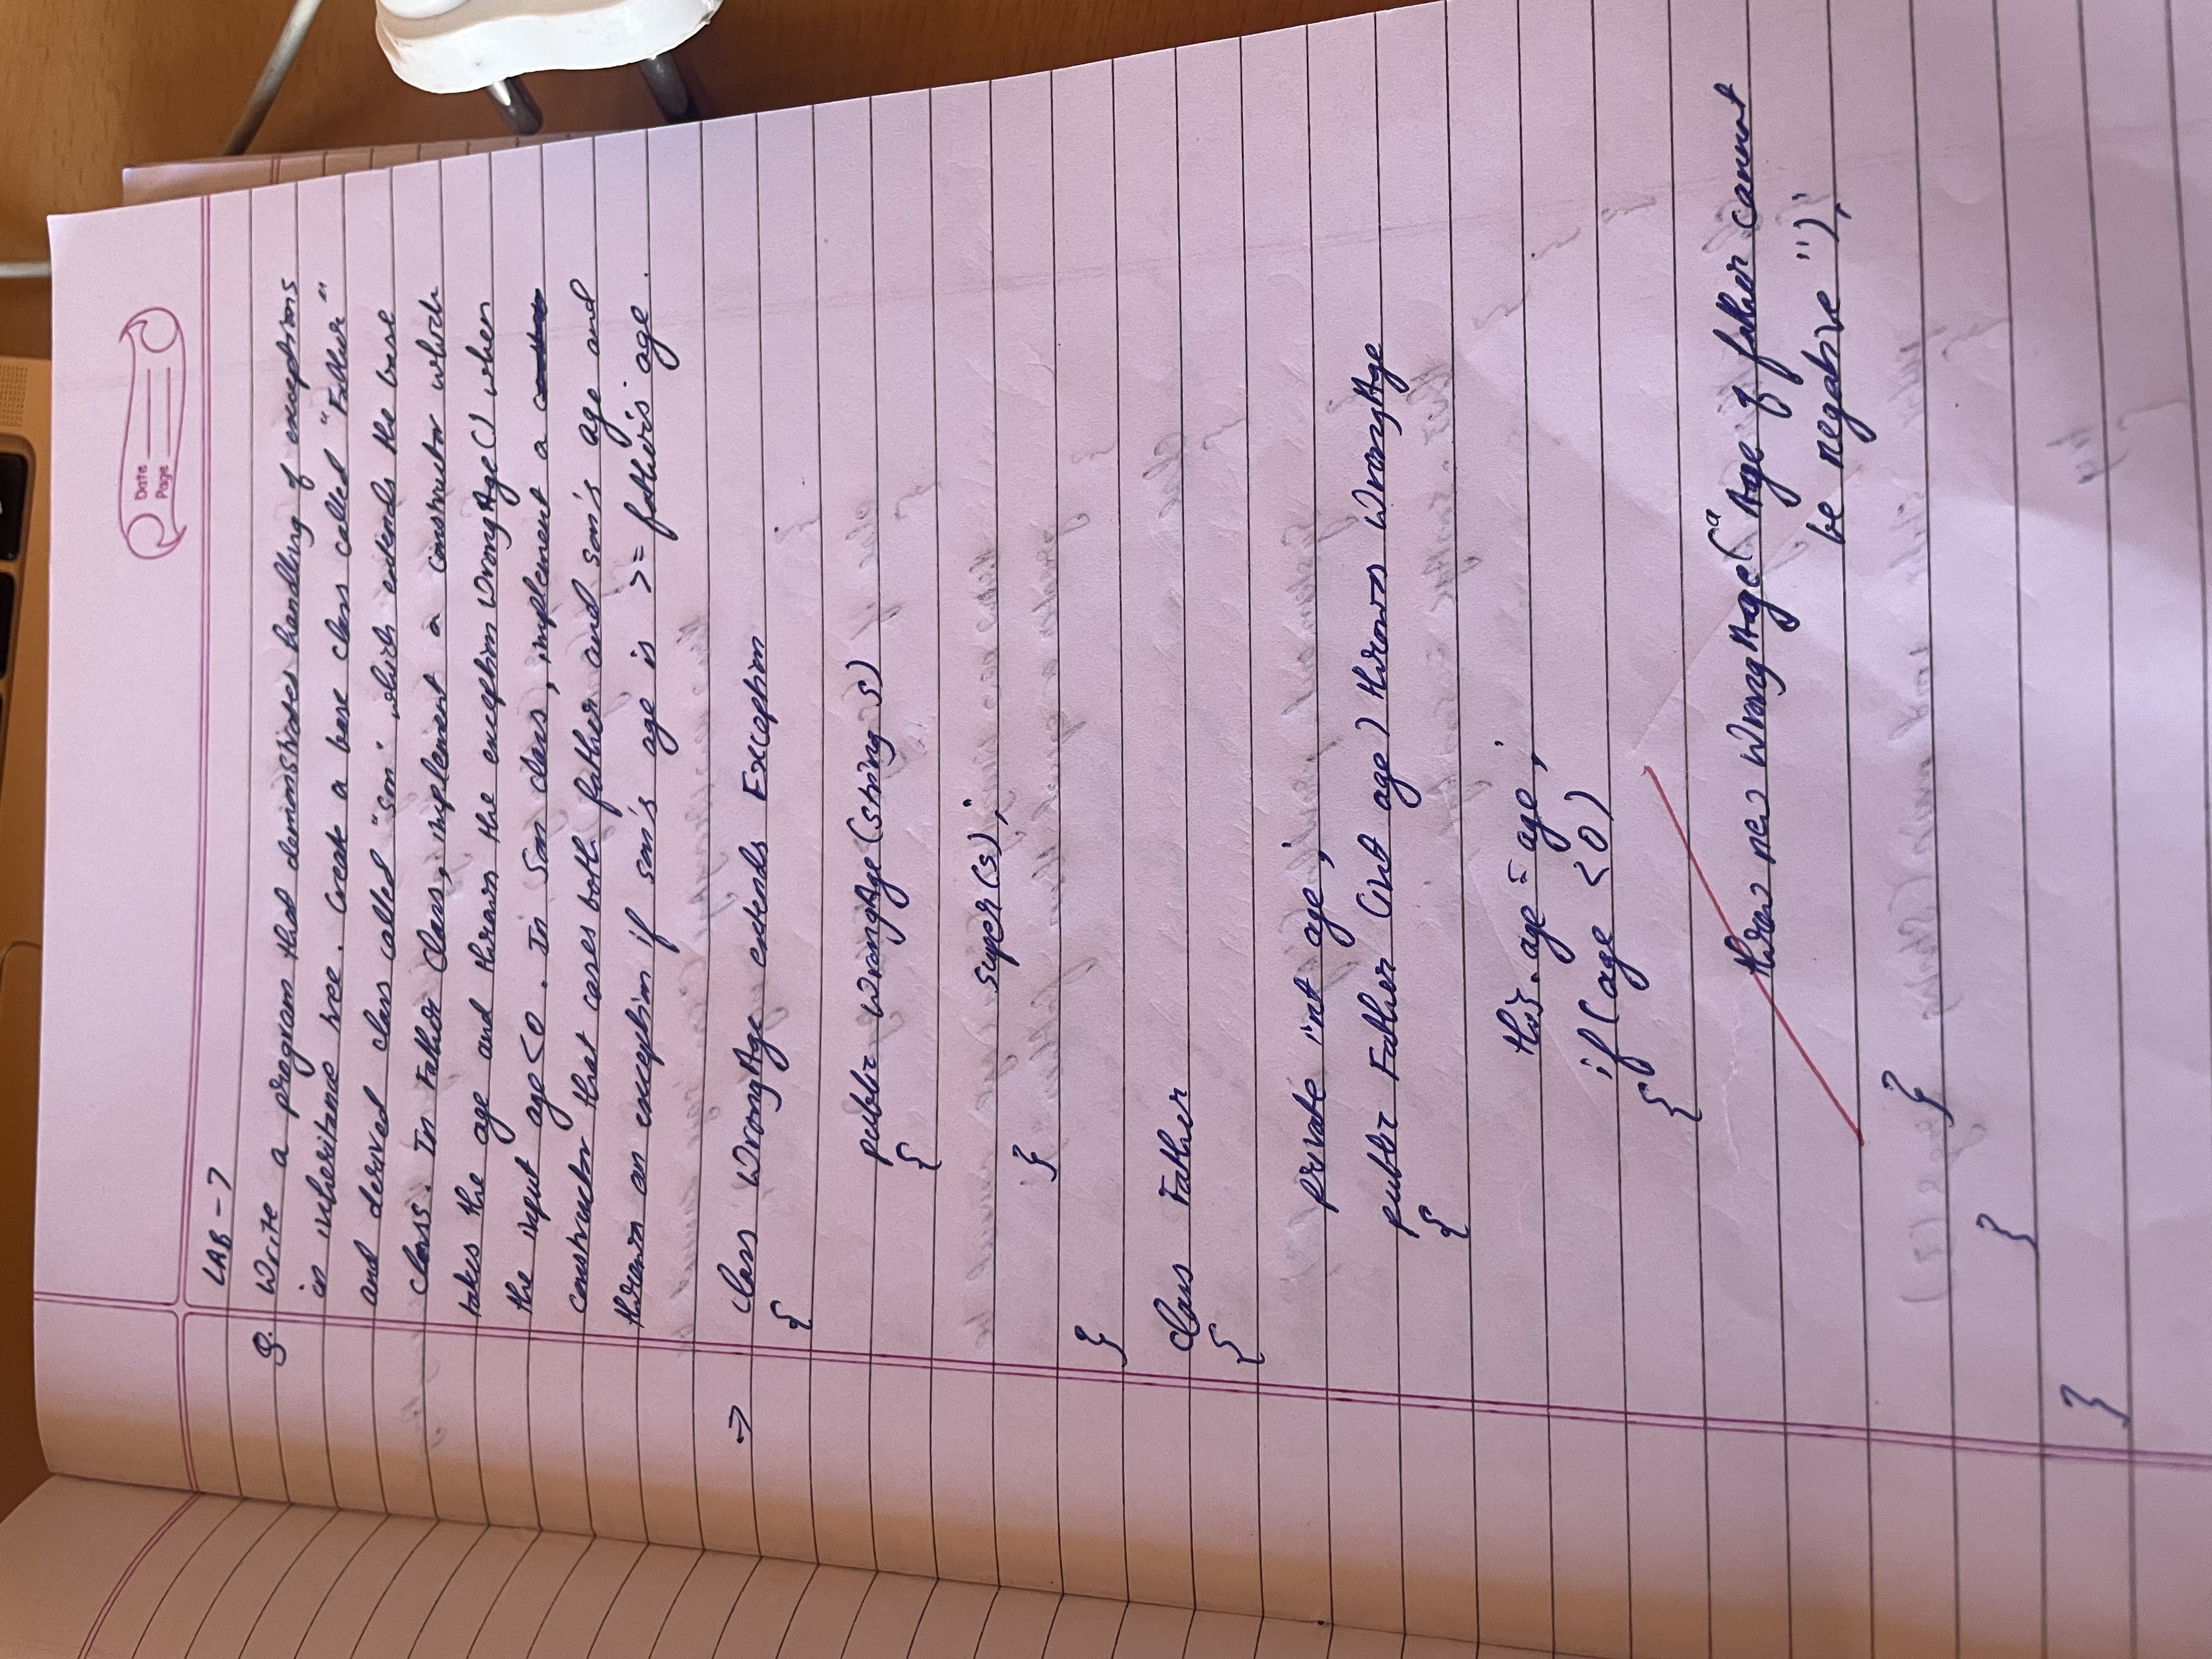 Date
Page
LAB - 7
Q. Write a program that demonstrates handling of exceptions
in inheritance tree. Create a base class called "Father"
and derived class called "son" which extends the base
class. In Father Class, implement a constructor which
takes the age and throws the exception WrongAge() when
the input age<0. In Son class, implement a
constructor that cases both father and son's age and
throws an exception if son's age is >= father's age.
=> class WrongAge extends Exception
{
public WrongAge(string s)
{
super(s);
}
}
class Father
{
private int age;
public Father (int age) throws WrongAge
{
this.age = age;
if(age <0)
{
throw new WrongAge("Age of father cannot
be negative");
}
}
}